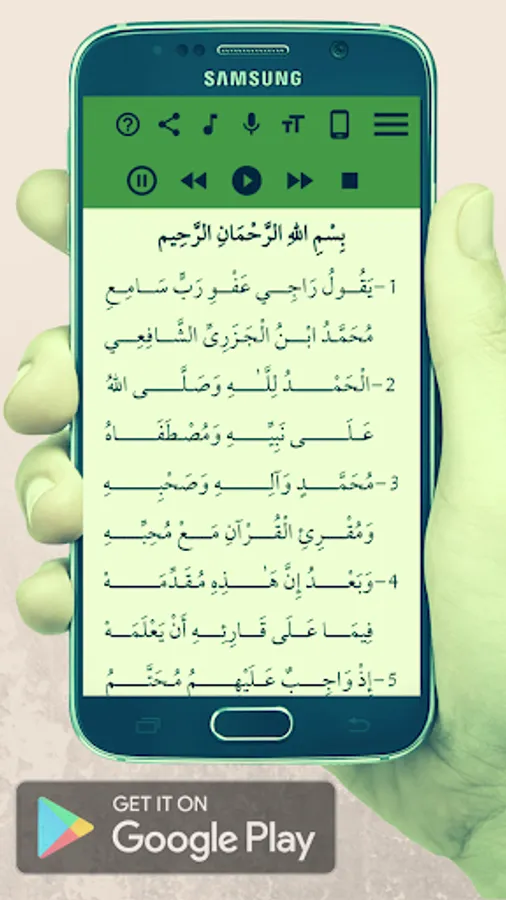 SAMSUNG
بِسْمِ اللهِ الرَّحْمَانِ الرَّحِيم
1- يَقُـولُ رَاجِـي عَفْـوِ رَبٍّ سَـامِـعِ
مُحَمَّدُ ابْـنُ الْجَزَرِيِّ الشَّافِعِـي
2- الْحَمْـدُ لِلَّـهِ وَصَلَّـى اللهُ
عَلَـى نَبِيِّـهِ وَمُصْطَفَـاهُ
3- مُحَمَّـدٍ وَآلِـهِ وَصَحْبِـهِ
وَمُقْـرِئِ الْقُـرْآنِ مَـعْ مُحِبِّـهِ
4- وَبَعْـدُ إِنَّ هَـٰذِهِ مُقَدِّمَـهْ
فِيمَـا عَلَى قَـارِئِـهِ أَنْ يَعْلَمَـهْ
5- إِذْ وَاجِـبٌ عَلَيْهِـمُ مُحَتَّـمُ
GET IT ON
Google Play